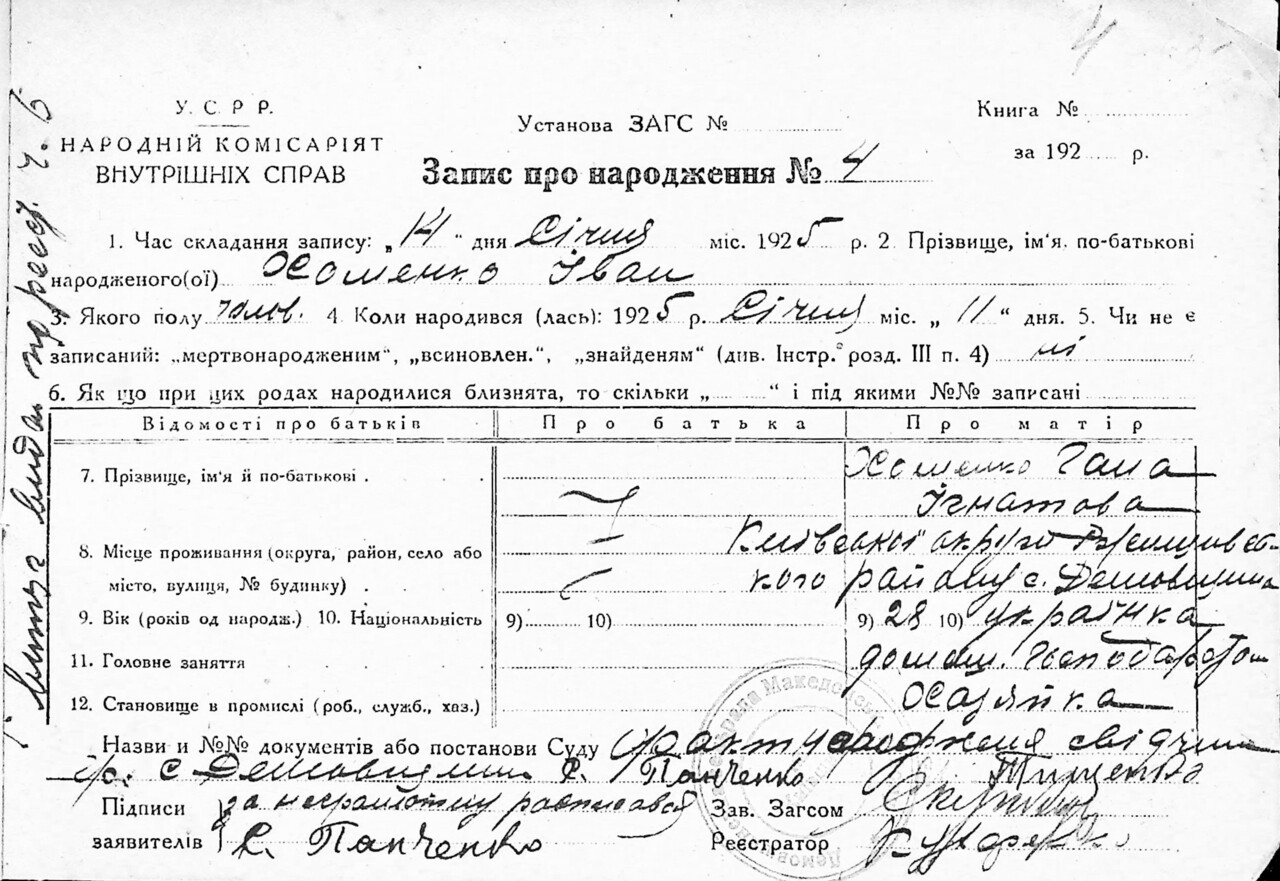 4
У. С. Р Р.
НАРОДНІЙ КОМІСАРІЯТ
ВНУТРІШНІХ СПРАВ
Установа ЗАГС №
Книга №
за 192 р.
Запис про народження № 4
1. Час складання запису: „14“ дня Січня міс. 1925 р. 2. Прізвище, ім'я. по-батькові
народженого(ої) Хоменко Іван
3. Якого полу чолов. 4 Коли народився (лась): 1925 р. Січня міс. „11“ дня. 5. Чи не є
записаний: „мертвонародженим“, „всиновлен.“, „знайденям“ (див. Інстр. розд. III п. 4) ні
6. Як що при цих родах народилися близнята, то скільки „ “ і під якими №№ записані
Відомості про батьків Про батька Про матір
7. Прізвище, ім'я й по-батькові . Хоменко Гана
Ігнатова
8. Місце проживання (округа, район, село або Київської округи
місто, вулиця, № будинку) . кого району с.
9. Вік (років од народж.) 10. Національність 9) 10) 9) 28 10) українка
11. Головне заняття домаш.
12. Становище в промислі (роб., служб., хаз.) Хазяйка
Назви и №№ документів або постанови Суду факт
гр. с. Панченко
Підписи за неграмотну расписався Зав. Загсом
заявителів С. Панченко Реєстратор